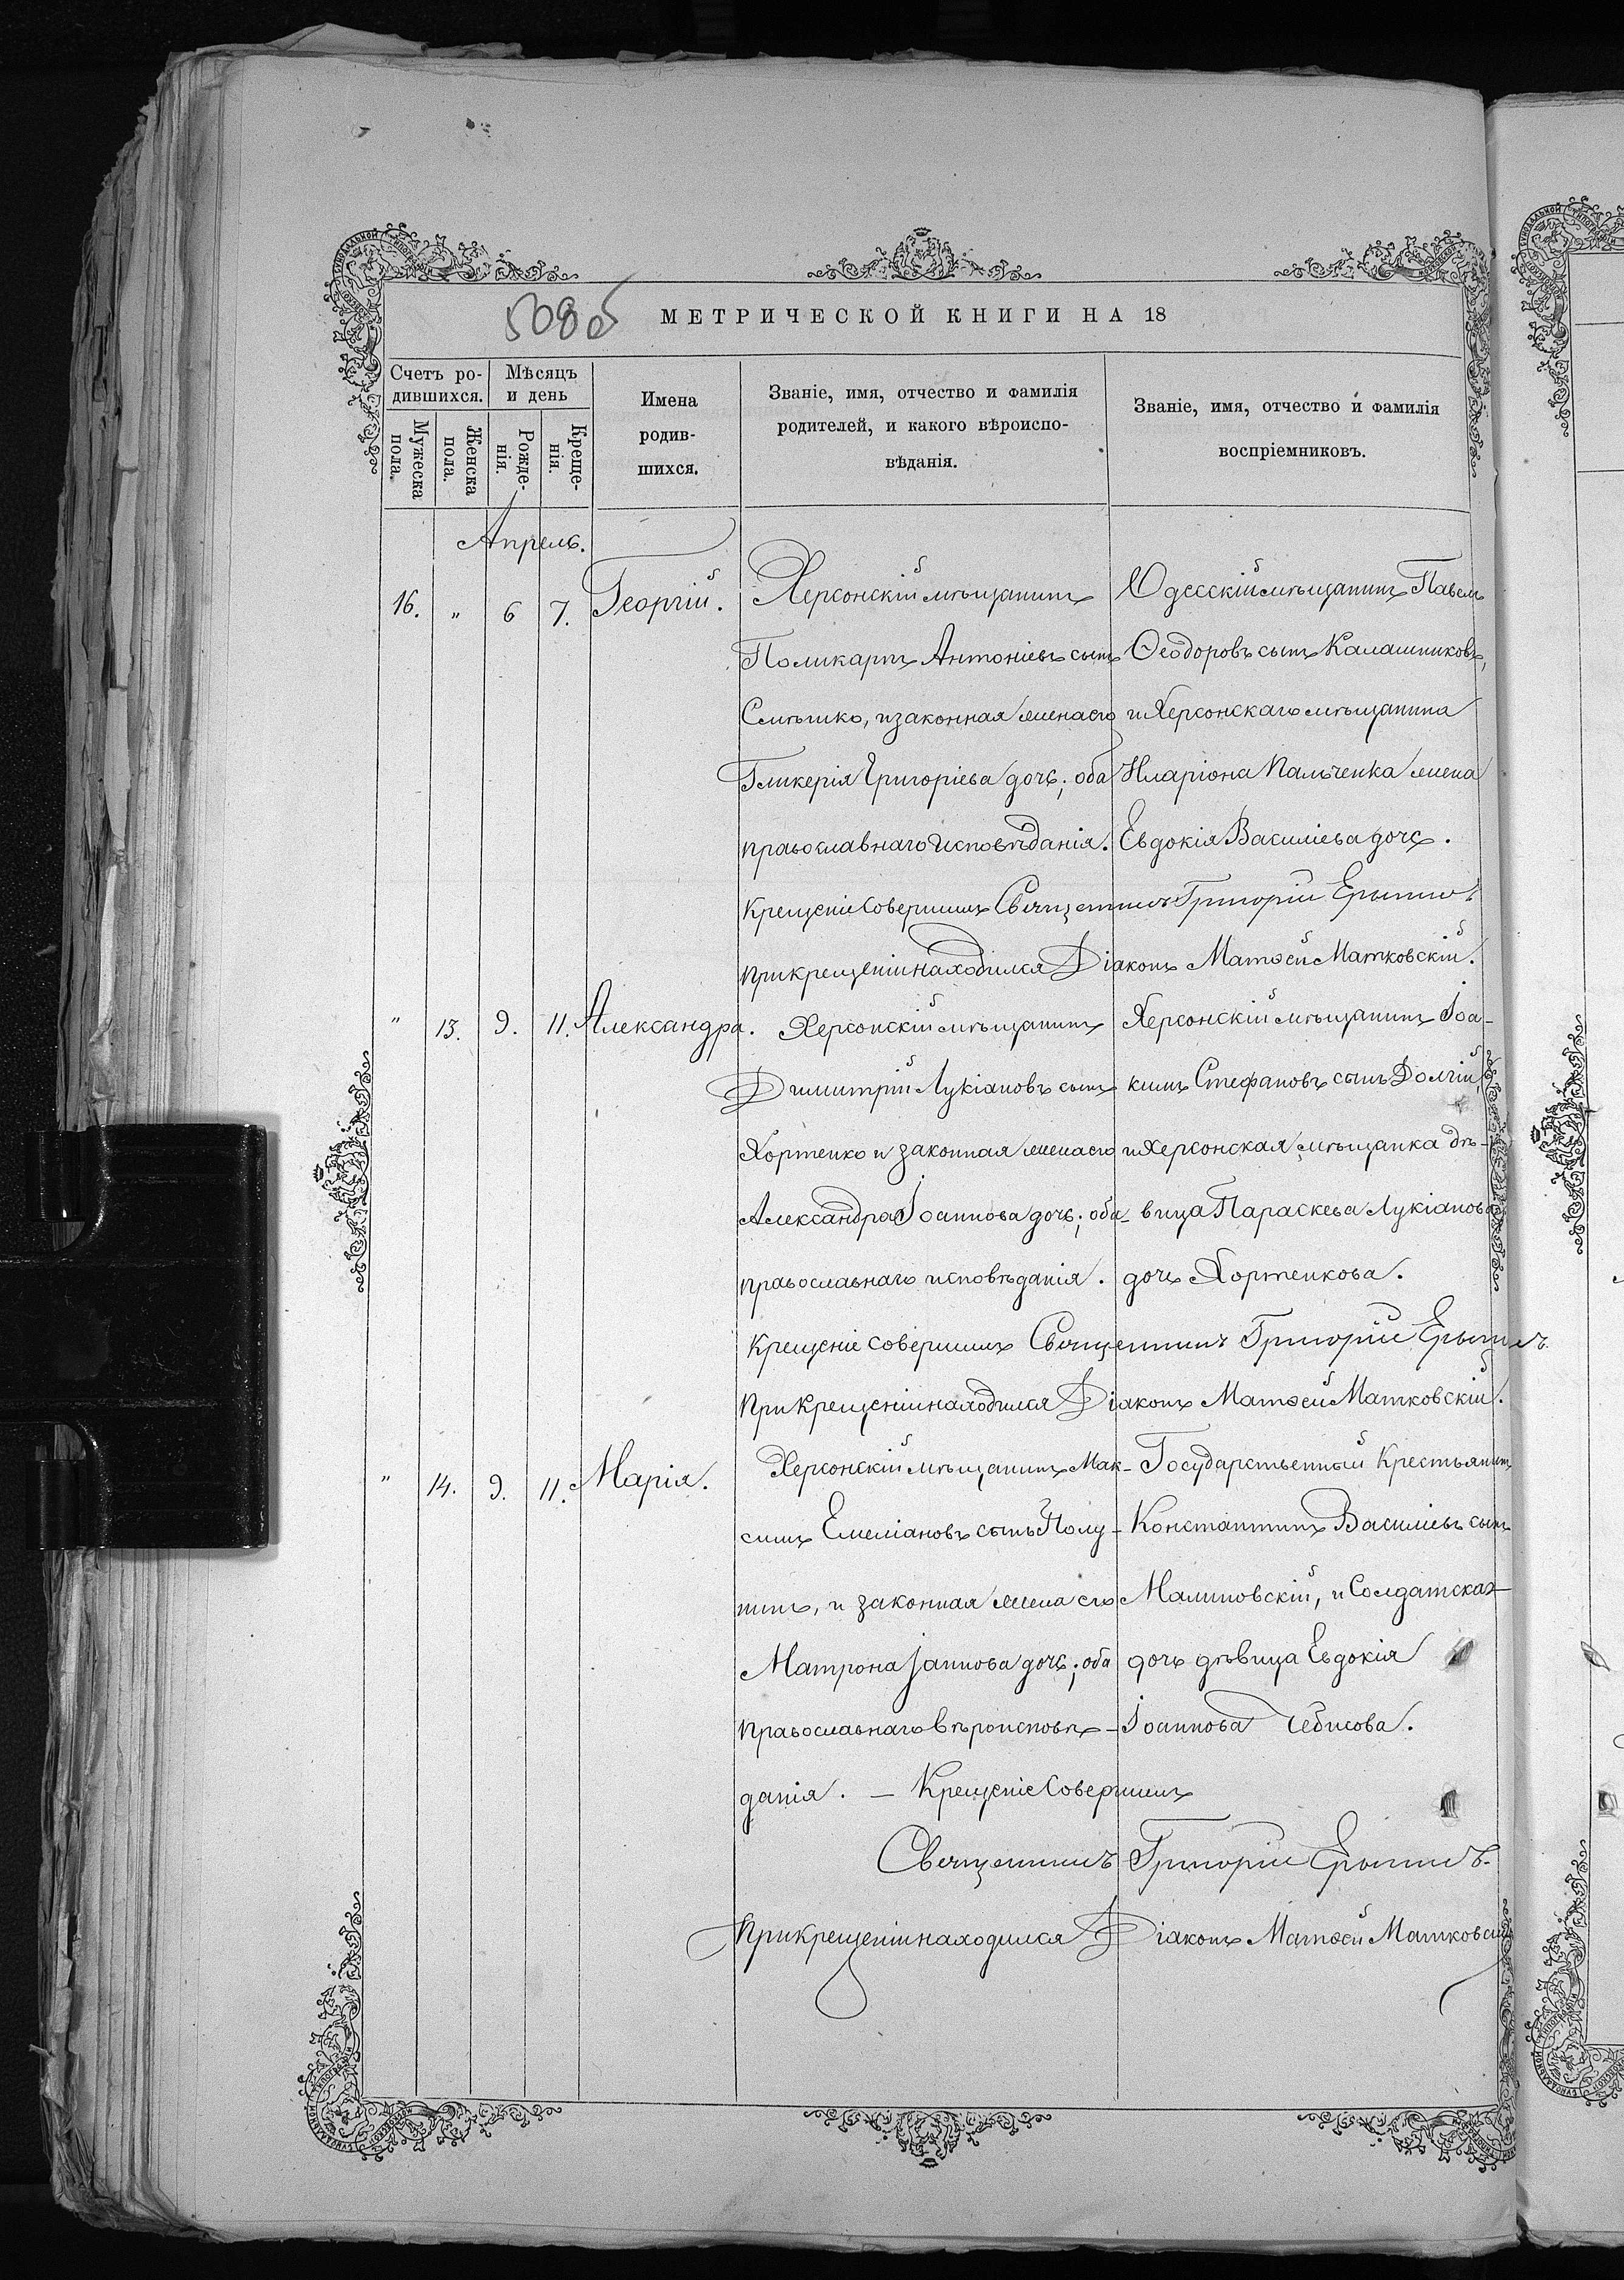 508об
МЕТРИЧЕСКОЙ КНИГИ НА 18
Счетъ ро-
дившихся.
Мужеска
пола.
Женска
пола.
Мѣсяцъ
и день
Рожде-
нія.
Креще-
нія.
Имена
родив-
шихся.
Званіе, имя, отчество и фамилія
родителей, и какого вѣроиспо-
вѣданія.
Званіе, имя, отчество и фамилія
воспріемниковъ.
Апрель.
16. " 6 7. Георгій.
Херсонскій мѣщанинъ
Поликарпъ Антоніевъ сынъ
Смѣшко, и законная жена его
Гликерія Григоріева дочь; оба
православнаго исповѣданія.
Одесскій мѣщанинъ Павелъ
Ѳеодоровъ сынъ Калашниковъ,
и Херсонскаго мѣщанина
Иларіона Пальченка жена
Евдокія Василіева дочь.
Крещеніе совершилъ Священникъ Григорій
При крещеніи находился Діаконъ Матѳей Матковскій.
" 13. 9. 11. Александра.
Херсонскій мѣщанинъ
Димитрій Лукіановъ сынъ
Хортенко и законная жена его
Александра Іоаннова дочь; оба
православнаго исповѣданія.
Херсонскій мѣщанинъ Іоа-
кимъ Стефановъ сынъ Долгій,
и Херсонская мѣщанка дѣ-
вица Параскева Лукіанова
дочь Хортенкова.
Крещеніе совершилъ Священникъ Григорій
При крещеніи находился Діаконъ Матѳей Матковскій.
" 14. 9. 11. Марія.
Херсонскій мѣщанинъ Мак-
симъ Емеліановъ сынъ Полу-
нинъ, и законная жена его
Матрона Іаннова дочь; оба
Православнаго вѣроисповѣ-
данія. — Крещеніе совершилъ
Государственный Крестьянинъ
Константинъ Василіевъ сынъ
Малиновскій, и Солдатская
дочь дѣвица Евдокія
Іоаннова Чебисова.
Священникъ Григорій
При крещеніи находился Діаконъ Матѳей Матковскій